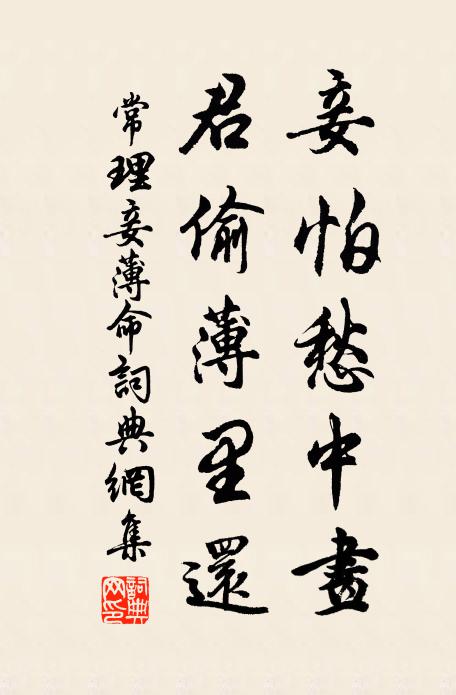 妾怕愁中畫
君偷薄里還
常理妾薄命詞典網集
詞典網印